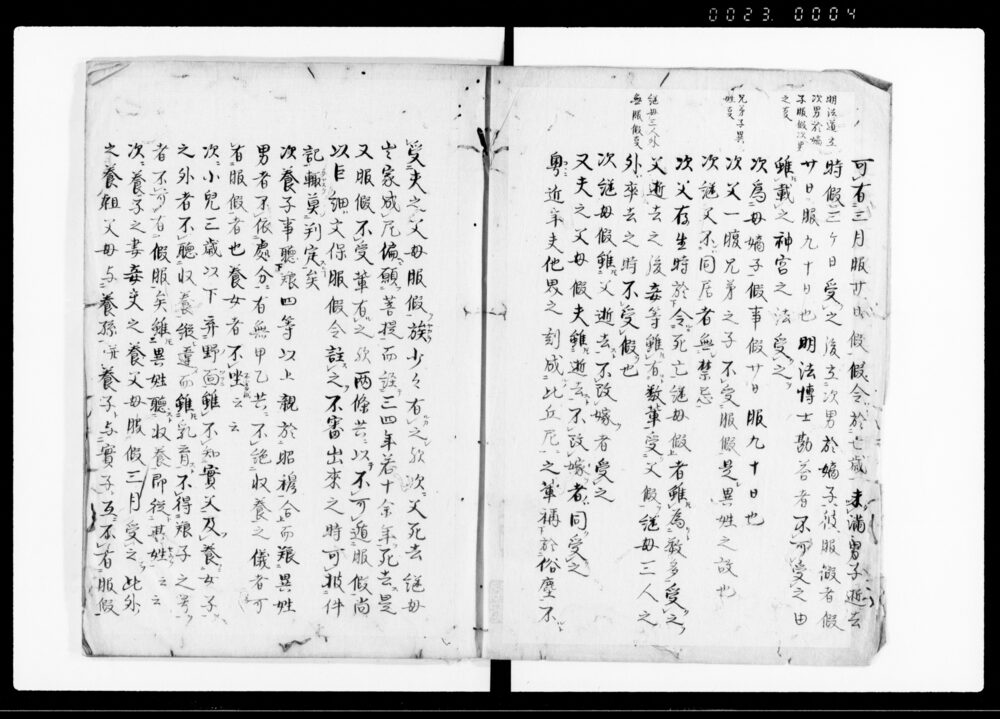 0023.0004
明法道立
次男於嫡
子服假次男
之支
可有三月服廿日假假令於七歳未満男子逝去
時假三ケ日受之後立次男於嫡子彼服假者假
廿日服九十日也明法博士勘答者不可受之由
雖載之神宮之法受之
次為母嫡子假事假廿日服九十日也
兄弟子異
姓支
次父一腹兄弟之子不受服假是異姓之故也
次継父不同居者無禁忌
次父存生時於令死亡継母假者雖為数多受之
継母三人外
無服假支
父逝去之後妾等雖有数輩受父假継母三人之
外卒去之時不受假也
次継母假雖父逝去不改嫁者受之
又夫之父母假夫雖逝去不改嫁者同受之
粤近年夫他界之刻成比丘尼之輩称於俗塵不
受夫之父母服假族少々有之歟次父死去継母
出家成尼偏願菩提而詮三四年若十余年死去是
又服假不受輩有之歟両條共以不可遁服假尚
以巨細文保服假令註之不審出来之時可披件
記輙莫判定矣
次養子事聴猿四等以上親於昭穆合而猿異姓
男者不依處分有無甲乙共不絶収養之儀者可
有服假者也養女者不坐云云
次小兒三歳以下弃野面雖不知實父及養女子
之外者不聴収養縦違而雖乳育不得猿子之号
者不可有假服矣雖異姓聴収養即従其姓云云
次養子之妻妾夫之養父母服假三月受之此外
之養祖父母与養孫并養子与實子互不有服假